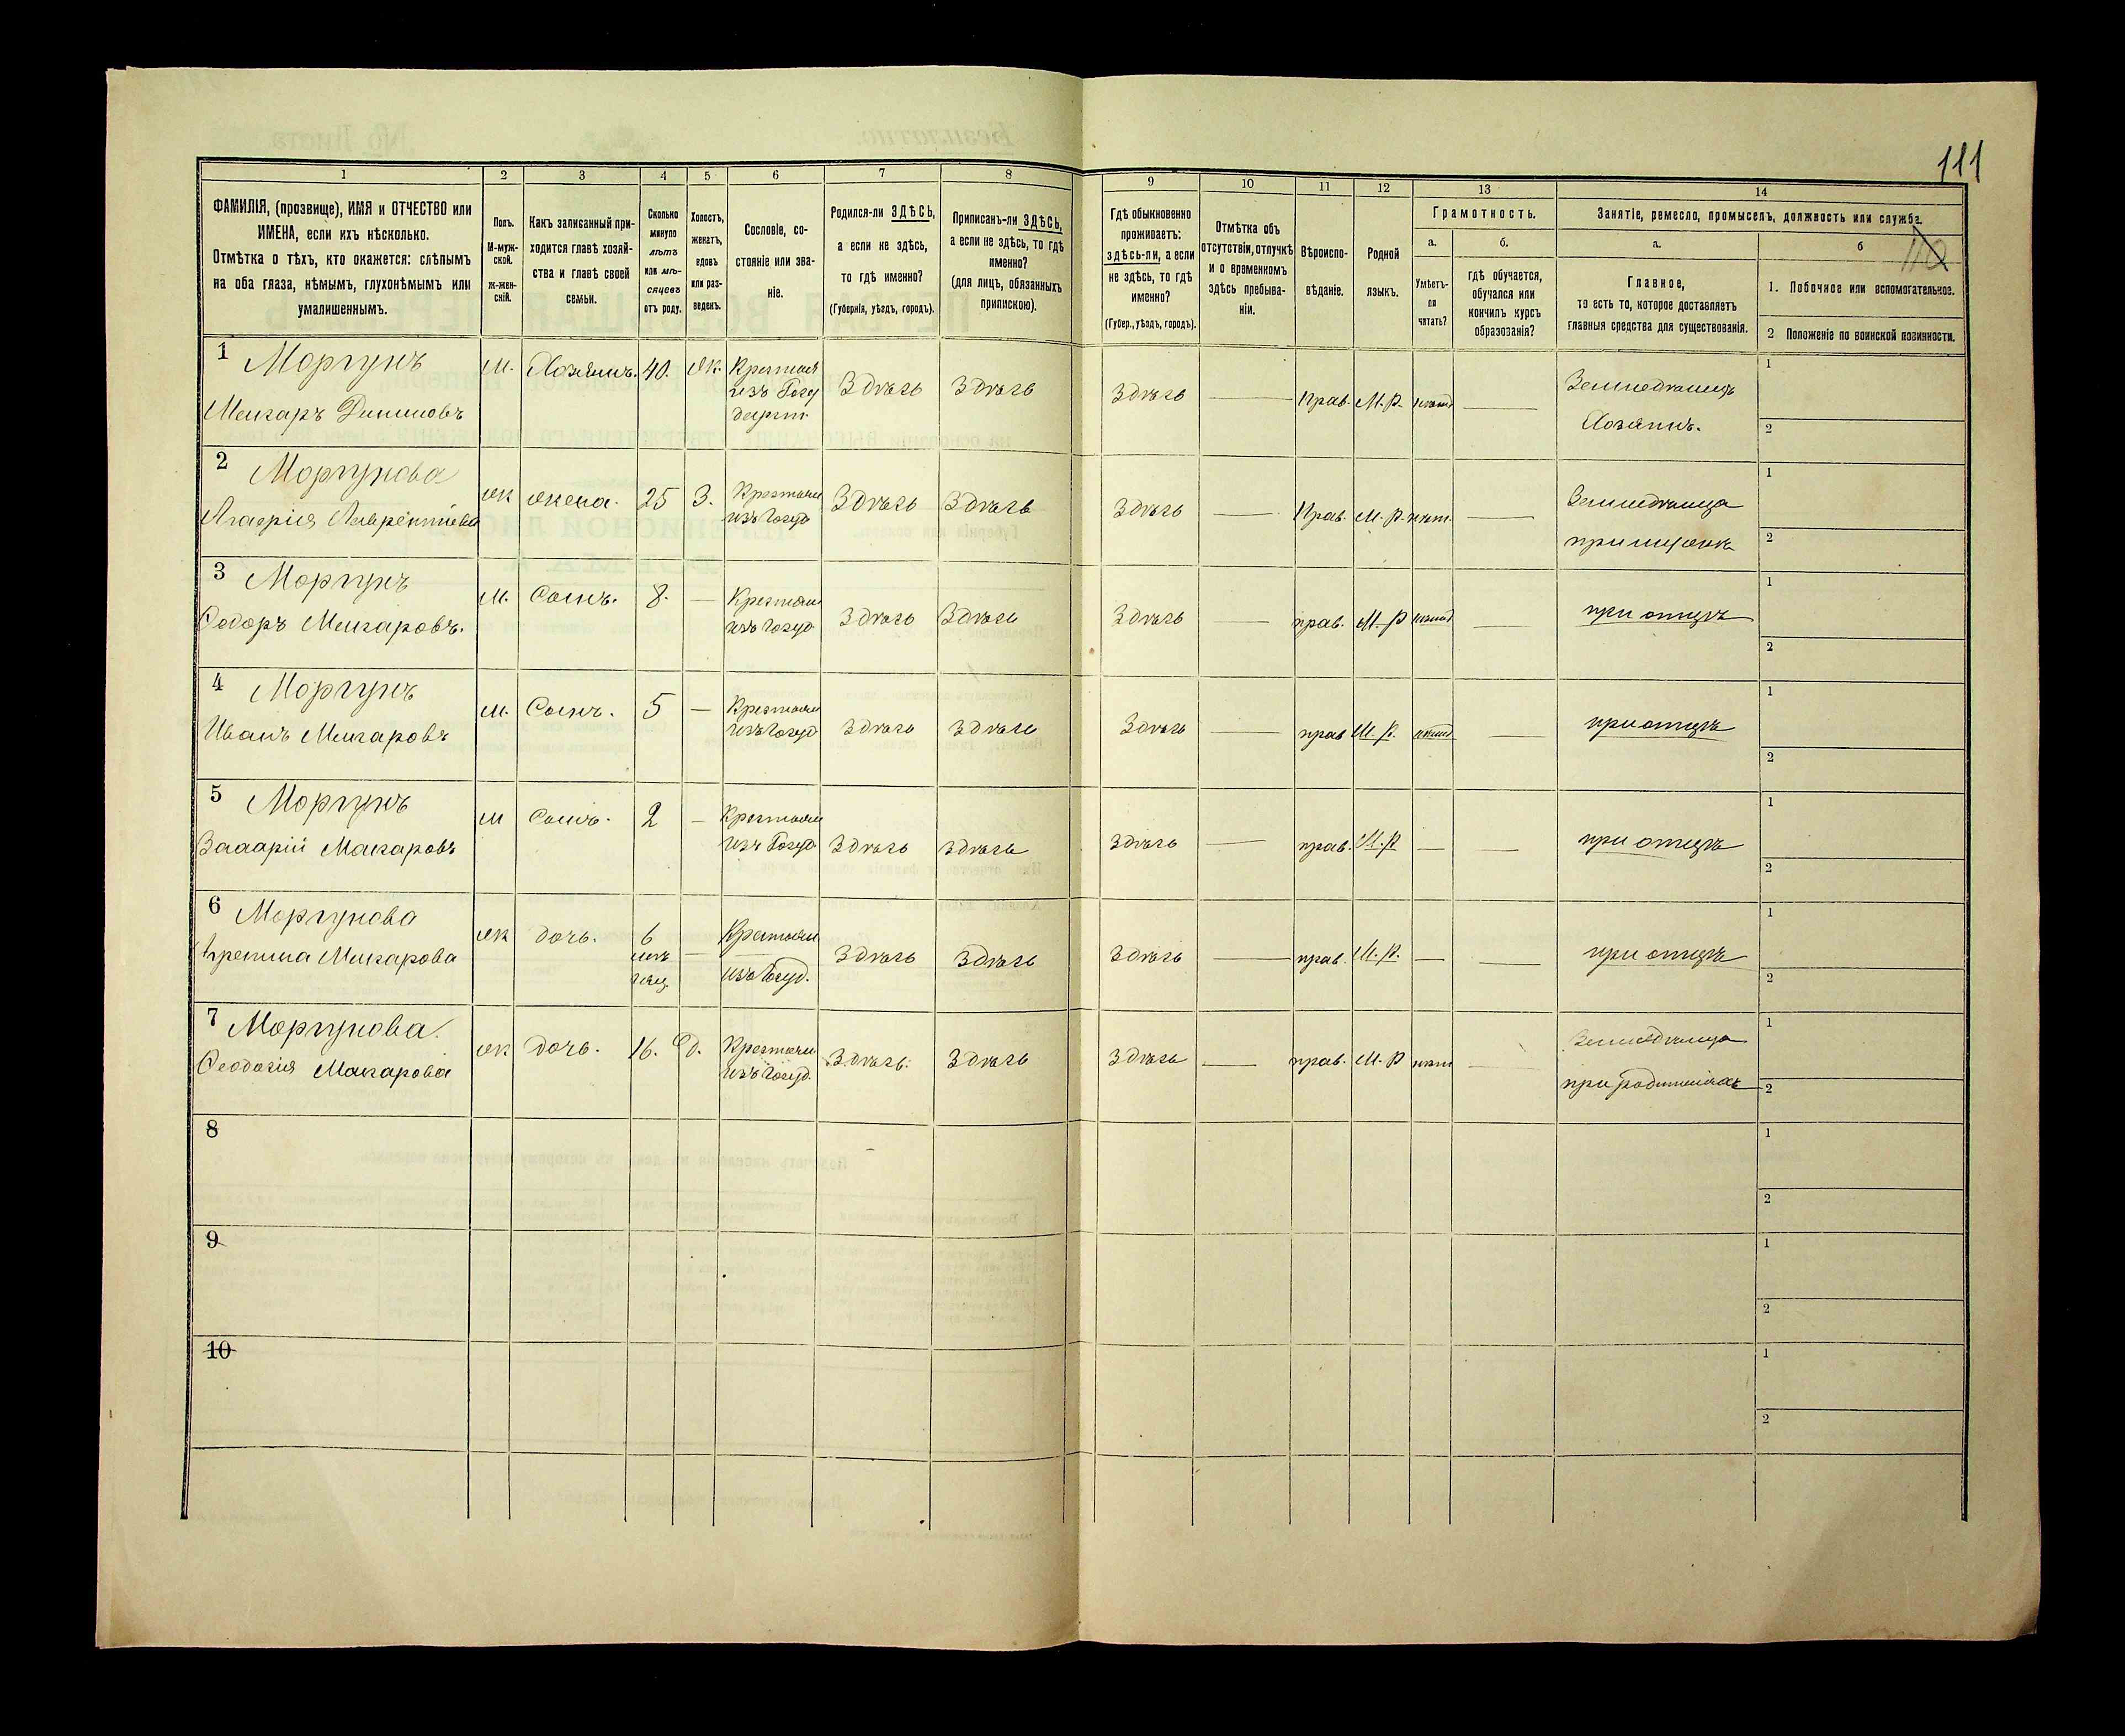 111
1 2 3 4 5 6 7 8 9 10 11 12 13 14
ФАМИЛІЯ, (прозвище), ИМЯ и ОТЧЕСТВО или
ИМЕНА, если ихъ нѣсколько.
Отмѣтка о тѣхъ, кто окажется: слѣпымъ
на оба глаза, нѣмымъ, глухонѣмымъ или
умалишеннымъ.
Полъ.
М-муж-
ской.
ж-жен-
скій.
Какъ записанный при-
ходится главѣ хозяй-
ства и главѣ своей
семьи.
Сколько
минуло
лѣтъ
или мѣ-
сяцевъ
отъ роду.
Холостъ,
женатъ,
вдовъ
или раз-
веденъ.
Сословіе, со-
стояніе или зва-
ніе.
Родился-ли ЗДѢСЬ,
а если не здѣсь,
то гдѣ именно?
(Губернія, уѣздъ, городъ).
Приписанъ-ли ЗДѢСЬ,
а если не здѣсь, то гдѣ
именно?
(для лицъ, обязанныхъ
припискою).
Гдѣ обыкновенно
проживаетъ:
здѣсь-ли, а если
не здѣсь, то гдѣ
именно?
(Губер., уѣздъ, городъ).
Отмѣтка объ
отсутствіи, отлучкѣ
и о временномъ
здѣсь пребыва-
ніи.
Вѣроиспо-
вѣданіе.
Родной
языкъ.
Грамотность.
а.
Умѣетъ-
ли
читать?
б.
гдѣ обучается,
обучался или
кончилъ курсъ
образованія?
Занятіе, ремесло, промыселъ, должность или служба.
а.
Главное,
то есть то, которое доставляетъ
главныя средства для существованія.
б
110
1. Побочное или вспомогательное.
2 Положеніе по воинской повинности.
1 Моргунъ М. Хозяинъ. 40. Ж. Крестьян 1
изъ Госуд Здѣсь Здѣсь Здѣсь — Прав. М.Р. нѣтъ — Земледѣлецъ
Макаръ Хозяинъ. 2
2 Моргунова Ж жена. 25 З. Крестьян Здѣсь Здѣсь Здѣсь — Прав. М.Р. нѣт. — Земледѣлица 1
Лаврентіева изъ Госуд при мужѣ 2
3 Моргунъ М. Сынъ. 8. — Крестьян Здѣсь Здѣсь Здѣсь — прав. М.Р нѣтъ — при отцѣ 1
Ѳедоръ Макаровъ. изъ Госуд 2
4 Моргунъ М. Сынъ. 5 — Крестьян Здѣсь Здѣсь Здѣсь — прав М.Р. нѣтъ — при отцѣ 1
Иванъ Макаровъ изъ Госуд 2
5 Моргунъ М Сынъ. 2 — Крестьян Здѣсь Здѣсь Здѣсь — прав. М.Р — — при отцѣ 1
Макаровъ изъ Госуд. 2
6 Моргунова Ж дочь. 6 — Крестьян Здѣсь Здѣсь Здѣсь — прав. М.Р. — — при отцѣ 1
Макарова изъ Госуд. 2
7 Моргунова. Ж дочь. 16. Крестьян Здѣсь. Здѣсь Здѣсь — прав. М.Р нѣт — Земледѣлица 1
Ѳеодосія Макарова изъ Госуд. при родителяхъ 2
8 1
2
9 1
2
10 1
2